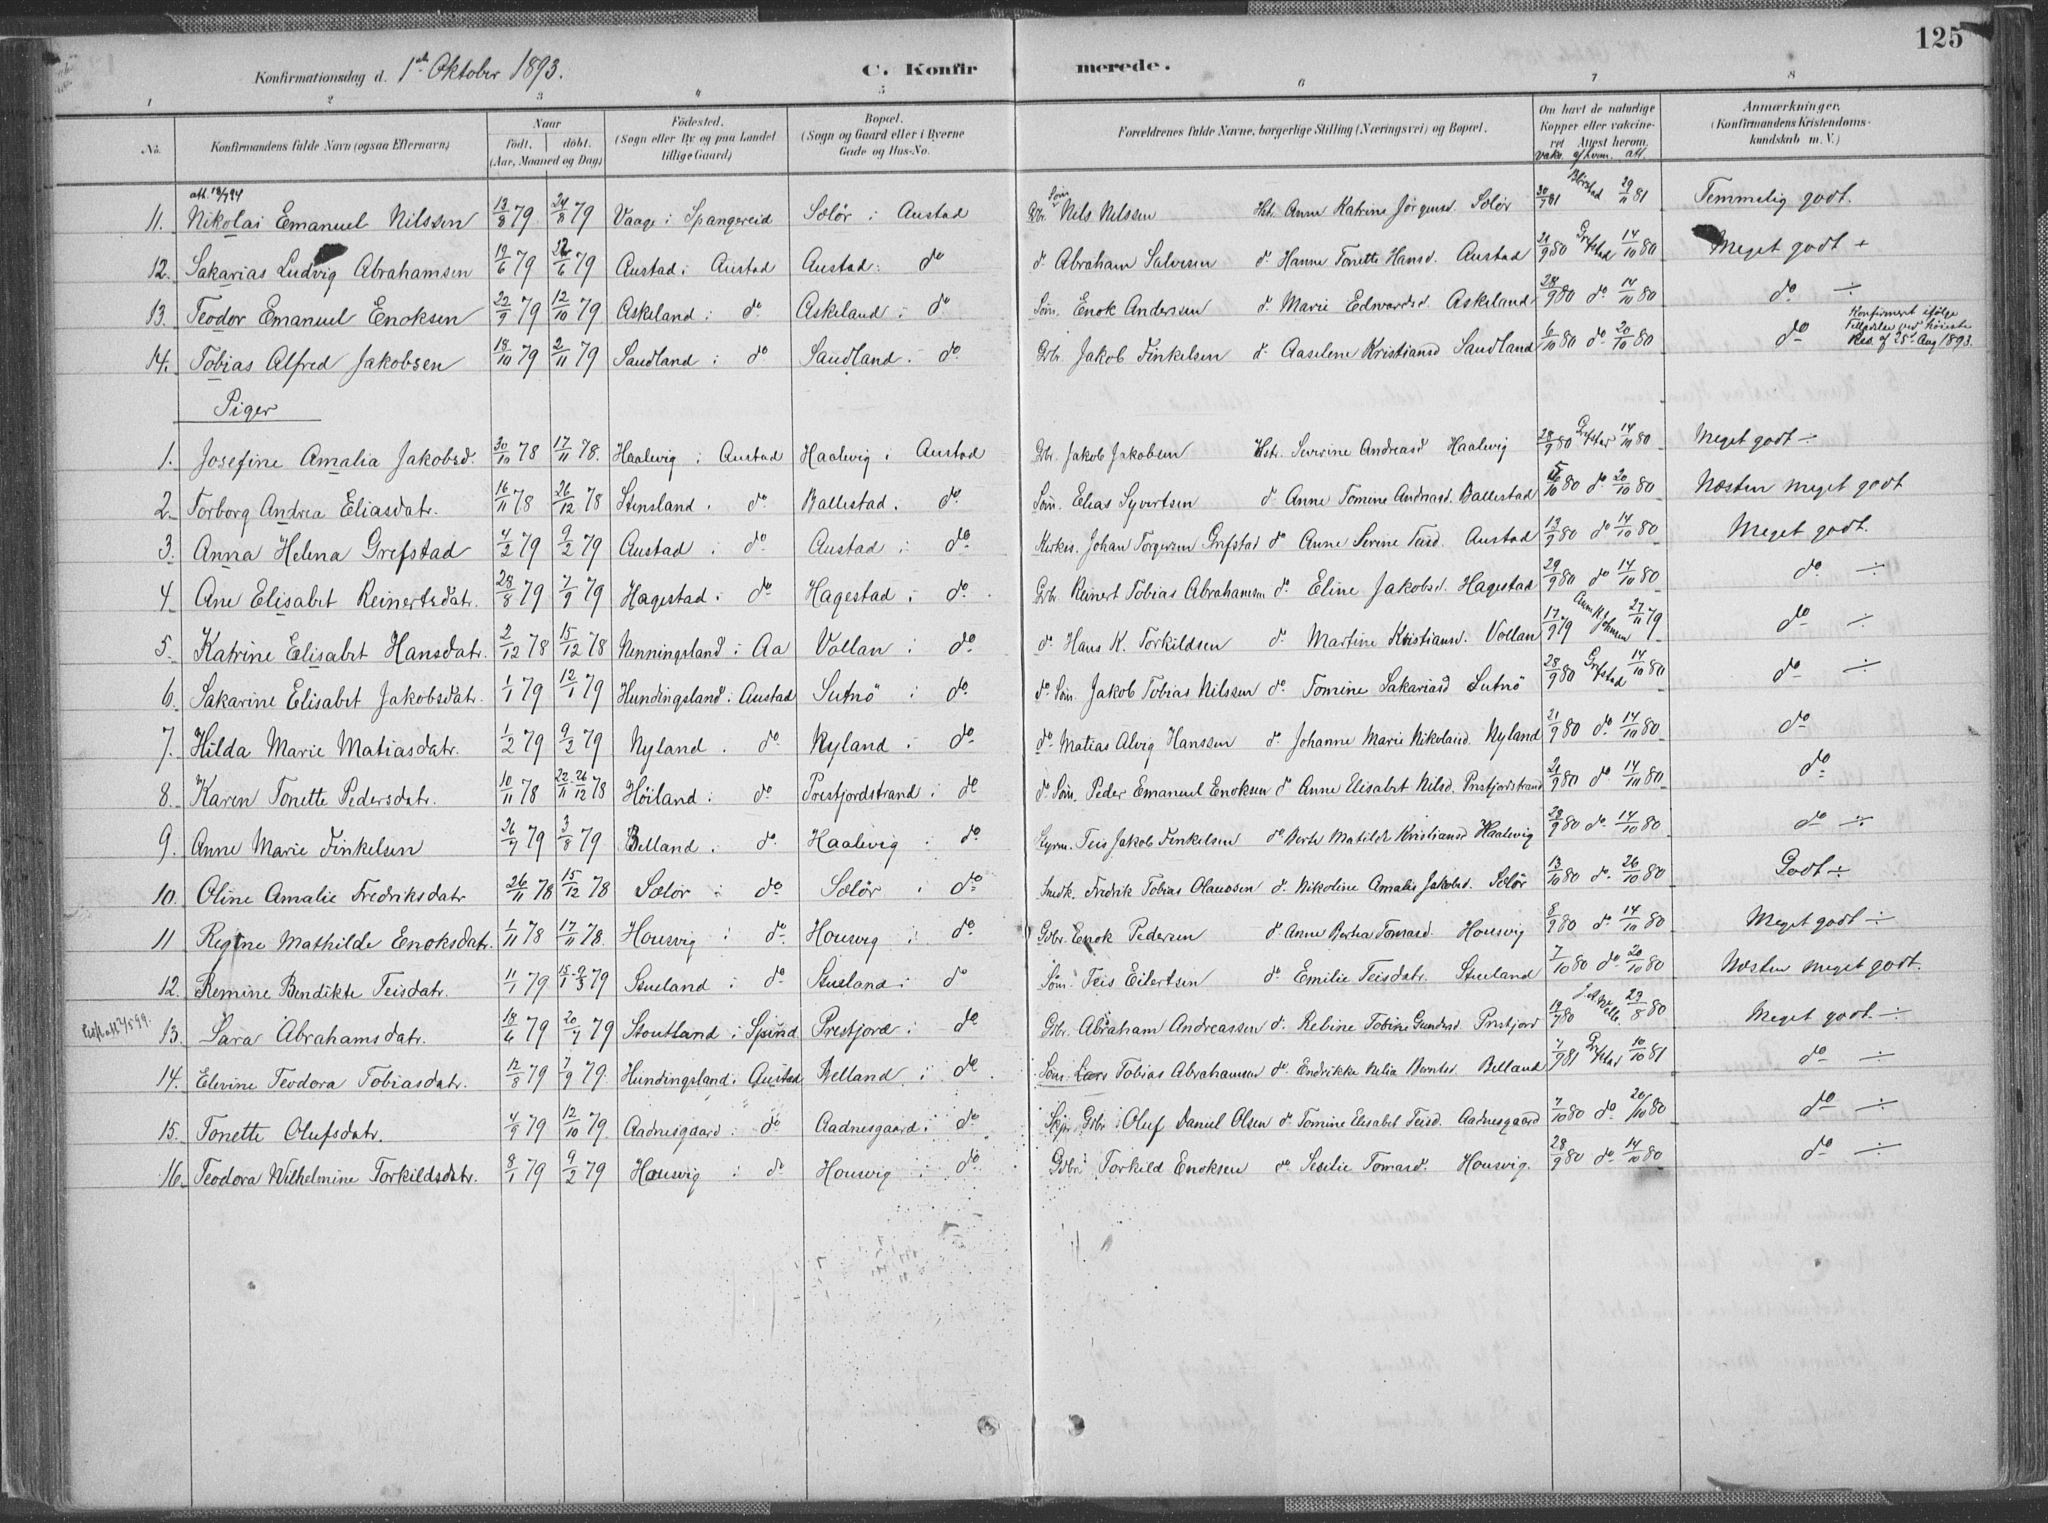 125
Konfirmationsdag d. 1ste Oktober 1893. C. Konfirmerede.
1 2 3 4 5 6 7 8
No. Konfirmandens fulde Navn (ogsaa Efternavn) Naar født. døbt. (Aar, Maaned og Dag) Fødested. (Sogn eller By og paa Landet tillige Gaard) Bopæl. (Sogn og Gaard eller i Byerne Gade og Hus-No. Forældrenes fulde Navne, borgerlige Stilling (Næringsvei) og Bopæl. Om havt de naturlige Kopper eller vakcineret Attest herom. vakc. af hvem. att. Anmærkninger, (Konfirmandens Kristendomskundskab m. V.)
att. 18/7 94
11. Nikolai Emanuel Nilssen 13/8 79 24/8 79 Vaage i Spangereid Sælør i Austad Gbr. Søm Nils Nilssen Hst. Anne Katrine Jørgensd. Sælør 30/7 81 29/11 81 Temmelig godt.
12. Sakarias Ludvig Abrahamsen 19/6 79 22/6 79 Austad i Austad Austad i do do Abraham Salvesen do Hanne Tonette Hansd. Austad 21/9 80 Grefstad 14/10 80 Meget godt +
13. Teodor Emanuel Enoksen 22/9 79 12/10 79 Askeland i do Askeland i do Søm. Enok Andersen do Marie Edwardsd. Askeland 28/9 80 do 14/10 80 do ÷
14. Tobias Alfred Jakobsen 18/10 79 2/11 79 Sandland i do Sandland i do Gbr. Jakob Finkelsen do Aaselene Kristiansd Sandland 6/10 80 do 20/10 80 do Konfirmeret ifølge Tilladelse ved høieste Res. af 25d Aug 1893.
Piger
1. Josefine Amalia Jakobsd. 30/10 78 17/11 78. Haalevig i Austad Haalevig i Austad Gbr. Jakob Jakobsen Hstr. Severine Andreasd Haalevig 28/9 80 Grefstad 14/10 80 Meget godt ÷
2. Torborg Andrea Eliasdatr. 16/11 78 26/12 78 Stensland i do Ballestad i do Søm. Elias Syvertsen do Anne Tomine Andreasd. Ballestad 5/10 80 do 20/10 80 Næsten meget godt
3. Anna Helena Grefstad 4/2 79 9/2 79 Austad i do Austad i do Kirkes. Johan Torgersen Grefstad do Anne Serine Teisd. Austad 13/9 80 do 14/10 80 Meget godt.
4. Ane Elisabet Reinertsdatr. 28/8 79 7/9 79 Hagestad i do Hagestad i do Gbr. Reinert Tobias Abrahamsen do Eline Jakobsd. Hagestad 29/9 80 do 14/10 80 do ÷
5. Katrine Elisabet Hansdatr. 2/12 78 15/12 78 Nenningsland i Aa Vollan i do do Hans K. Torkildsen do Martine Kristiansd. Vollan 17/9 79 27/11 79 do ÷
6. Sakarine Elisabet Jakobsdatr. 1/1 79 12/1 79 Hundingsland i Austad Sutnö i do do Søm. Jakob Tobias Nilssen do Tomine Sakariasd Sutnö 28/9 80 Grefstad 14/10 80 do ÷
7. Hilda Marie Matiasdatr. 1/2 79 9/2 79 Nyland i do Nyland i do do Matias Alvig Hanssen do Johanne Marie Nikolaisd. Nyland 21/9 80 do 14/10 80 do
8. Karen Tonette Pedersdatr. 10/11 78 22/11 - 26/12 78 Höiland i do Prestjordstrand i do do Søm. Peder Emanuel Enoksen do Anne Elisabet Nilsd. Prestjordstrand 21/9 80 do 14/10 80 do
9. Anne Marie Finkelsen 26/7 79 3/8 79 Belland i do Haalevig i do Styrm. Teis Jakob Finkelsen do Berte Matilde Kristiansd Haalevig 29/9 80 do 14/10 80 do ÷
10. Oline Amalie Fredriksdatr 26/11 78 15/12 78 Sælør i do Sælør i do Snedk. Fredrik Tobias Olaussen do Nikoline Amalie Jakobsd. Sælør 13/10 80 do 26/10 80 Godt ÷
11 Regine Mathilde Enoksdatr. 1/11 78 17/11 78. Housvig i do Housvig i do Gdbr. Enok Pedersen do Anne Berthea Tomasd. Housvig 8/9 80 do 14/10 80 Meget godt ÷
12. Remine Bendikte Teisdatr. 11/1 79 15/1 - 9/3 79 Stueland i do Stueland i do Søm. Teis Eilertsen do Emilie Teisdatr. Stueland 7/10 80 do 20/10 80 Næsten meget godt.
13. Sara Abrahamsdatr. 18/6 79 20/7 79 Stoutland i Spind Prestjord i do Gbr. Abraham Andreassen do Rebine Tobine Gundersd Prestjord 19/7 80 29/8 80 Meget godt. ÷
14. Elevine Teodora Tobiasdatr. 12/8 79 7/9 79. Hundingsland i Austad Belland i do Søm. Lars Tobias Abrahamsen do Endrikke Nelia Berntsd. Belland 7/9 81 Grefstad 10/10 81 do ÷
15. Tonette Olufsdatr. 4/9 79 12/10 79. Aadnesgaard i do Aadnesgaard i do Skpr. Gdbr. Oluf Daniel Olsen do Tomine Elisabet Teisd. Aadnesgaard 7/10 80 do 20/10 80 do ÷
16. Teodora Wilhelmine Torkildsdatr. 8/1 79 9/2 79 Housvig i do Housvig i do Gdbr. Torkild Enoksen do Sesilie Tomasd. Housvig. 28/9 80 do 14/10 80 do ÷